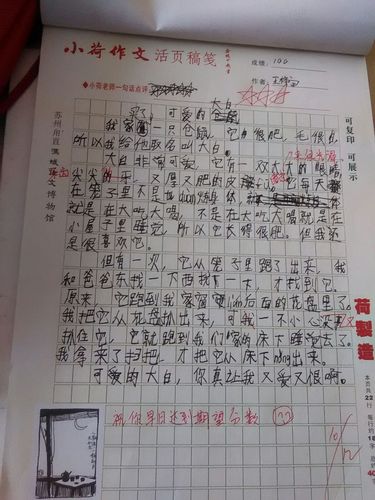 小荷作文 活页稿笺
成绩：100
作者：
◆小荷老师一句话点评
可复印 可展示
苏州用直
文博物馆
大白
可爱的
我家有一只仓鼠，它很肥，毛很白，
所以我给他取名叫大白。
大白非常可爱，它有一双大大的眼睛
尖尖的牙，又厚又肥的皮
在笼子里不是
就是在大吃大喝，不是在大吃大喝就是在
小屋子里睡觉，所以它长得很肥。但我还
是很喜欢它。
但有一次，它从笼子里跑了出来，我
和爸爸东找一下西找一下，才找到它。
原来，它跑到我家窗 lián后面的花盘里了。
我把它从花盘扒出来，可我一不小心没
抓住它，它就跑到我们家的床下睡觉去了。
我拿来了扫把，才把它从床下nòng出来。
可爱的大白，你真让我又爱又恨啊。
祝你早日达到期望分数
10/12
荷製造
本页共22行